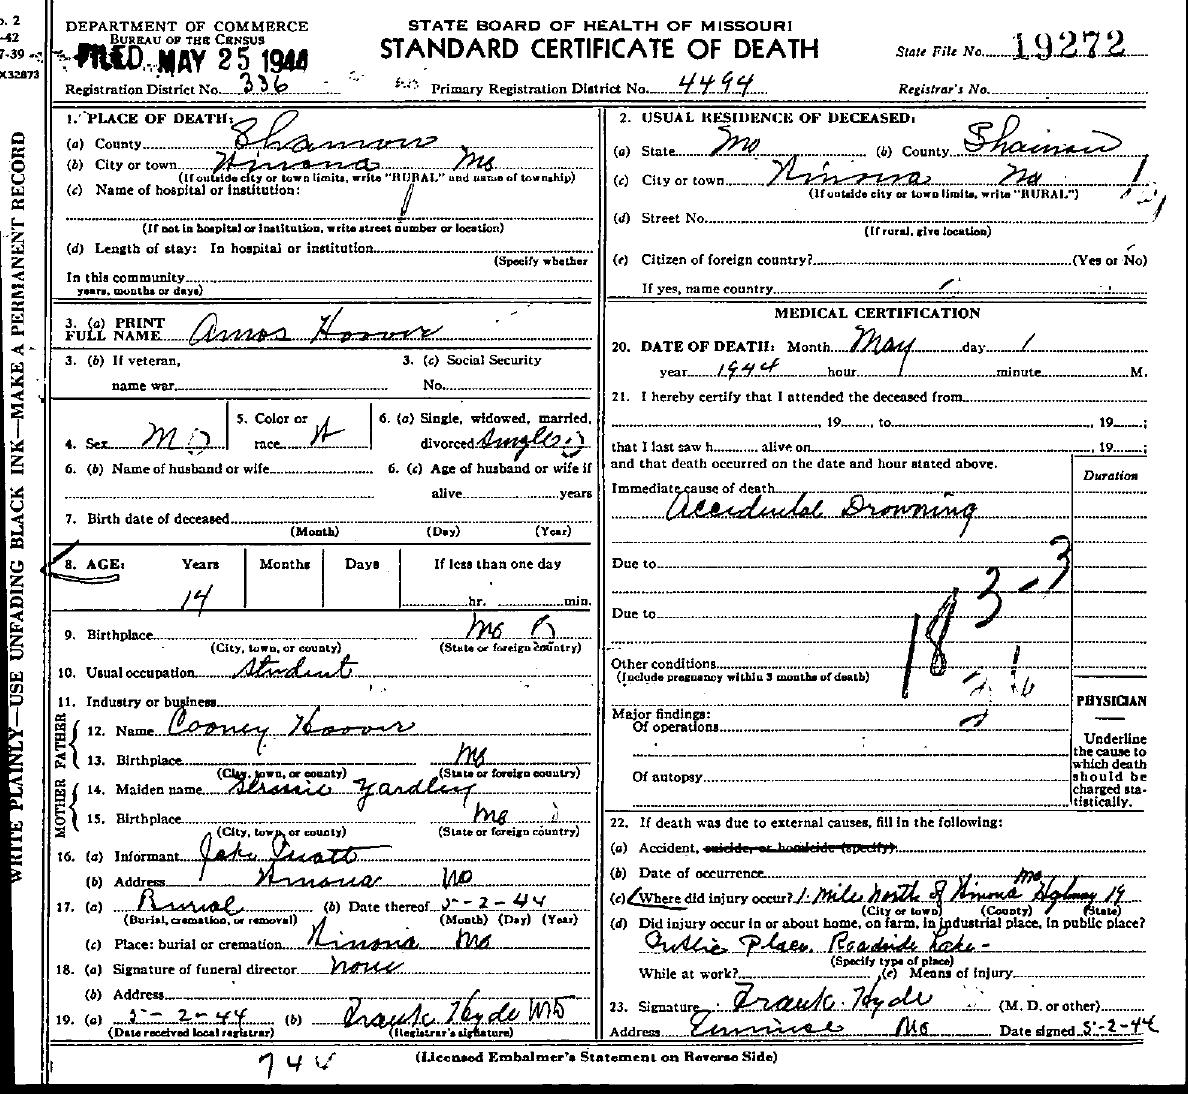 o. 2
-42
7-39
X32873
DEPARTMENT OF COMMERCE
BUREAU OF THE CENSUS
FILED MAY 25 1944
Registration District No. 336
STATE BOARD OF HEALTH OF MISSOURI
STANDARD CERTIFICATE OF DEATH
Primary Registration District No. 4494
State File No. 19272
Registrar's No.
WRITE PLAINLY—USE UNFADING BLACK INK—MAKE A PERMANENT RECORD
1. PLACE OF DEATH:
(a) County Shannon
(b) City or town Winona Mo
(If outside city or town limits, write "RURAL" and name of township)
(c) Name of hospital or institution:
(If not in hospital or institution, write street number or location)
(d) Length of stay: In hospital or institution
(Specify whether
In this community
years, months or days)
3. (a) PRINT
FULL NAME Amos Hoover
3. (b) If veteran,
name war
3. (c) Social Security
No.
4. Sex M
5. Color or
race W
6. (a) Single, widowed, married,
divorced Single
6. (b) Name of husband or wife
6. (c) Age of husband or wife if
alive years
7. Birth date of deceased
(Month) (Day) (Year)
8. AGE: Years Months Days If less than one day
14 hr. min.
9. Birthplace Mo
(City, town, or county) (State or foreign country)
10. Usual occupation Student
11. Industry or business
FATHER
12. Name Cooney Hoover
13. Birthplace Mo
(City, town, or county) (State or foreign country)
MOTHER
14. Maiden name Yardley
15. Birthplace Mo
(City, town, or county) (State or foreign country)
16. (a) Informant Jake Pruatt
(b) Address Winona Mo
17. (a) Burial (b) Date thereof 5-2-44
(Burial, cremation, or removal) (Month) (Day) (Year)
(c) Place: burial or cremation Winona Mo
18. (a) Signature of funeral director none
(b) Address
19. (a) 5-2-44 (b) Frank Hyde MD
(Date received local registrar) (Registrar's signature)
2. USUAL RESIDENCE OF DECEASED:
(a) State Mo (b) County Shannon
(c) City or town Winona Mo
(If outside city or town limits, write "RURAL")
(d) Street No.
(If rural, give location)
(e) Citizen of foreign country? (Yes or No)
If yes, name country
MEDICAL CERTIFICATION
20. DATE OF DEATH: Month May day 1
year 1944 hour minute M.
21. I hereby certify that I attended the deceased from
, 19 , to , 19 ;
that I last saw h alive on , 19 ;
and that death occurred on the date and hour stated above.
Duration
Immediate cause of death
Accidental Drowning
Due to
Due to
183-3
Other conditions
(Include pregnancy within 3 months of death)
Major findings:
Of operations
Of autopsy
PHYSICIAN
Underline
the cause to
which death
should be
charged sta-
tistically.
22. If death was due to external causes, fill in the following:
(a) Accident, suicide, or homicide (specify)
(b) Date of occurrence
(c) Where did injury occur? 1 Mile North of Winona Mo Highway 19
(City or town) (County) (State)
(d) Did injury occur in or about home, on farm, in industrial place, in public place?
Public Place Roadside Lake -
(Specify type of place)
While at work? (e) Means of injury
23. Signature Frank Hyde (M. D. or other)
Address Eminence Mo Date signed 5-2-44
(Licensed Embalmer's Statement on Reverse Side)
744